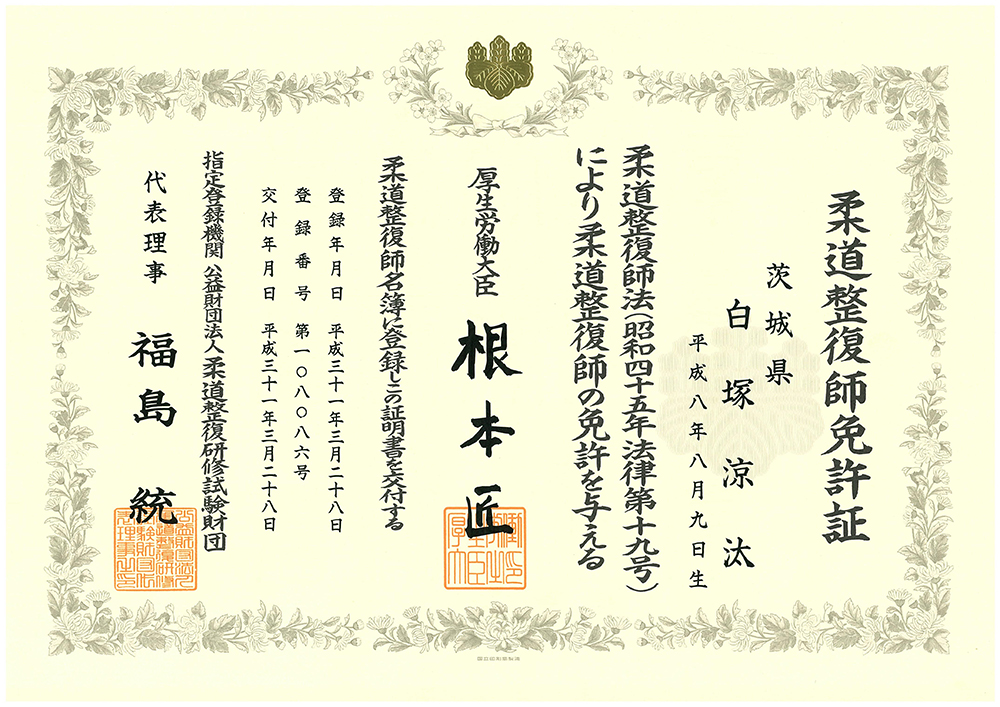 柔道整復師免許証
茨城県
白塚涼汰
平成八年八月九日生
柔道整復師法(昭和四十五年法律第十九号)
により柔道整復師の免許を与える
厚生労働大臣 根本匠
柔道整復師名簿に登録しこの証明書を交付する
登録年月日 平成三十一年三月二十八日
登録番号 第一〇八〇八六号
交付年月日 平成三十一年三月二十八日
指定登録機関 公益財団法人柔道整復研修試験財団
代表理事 福島統